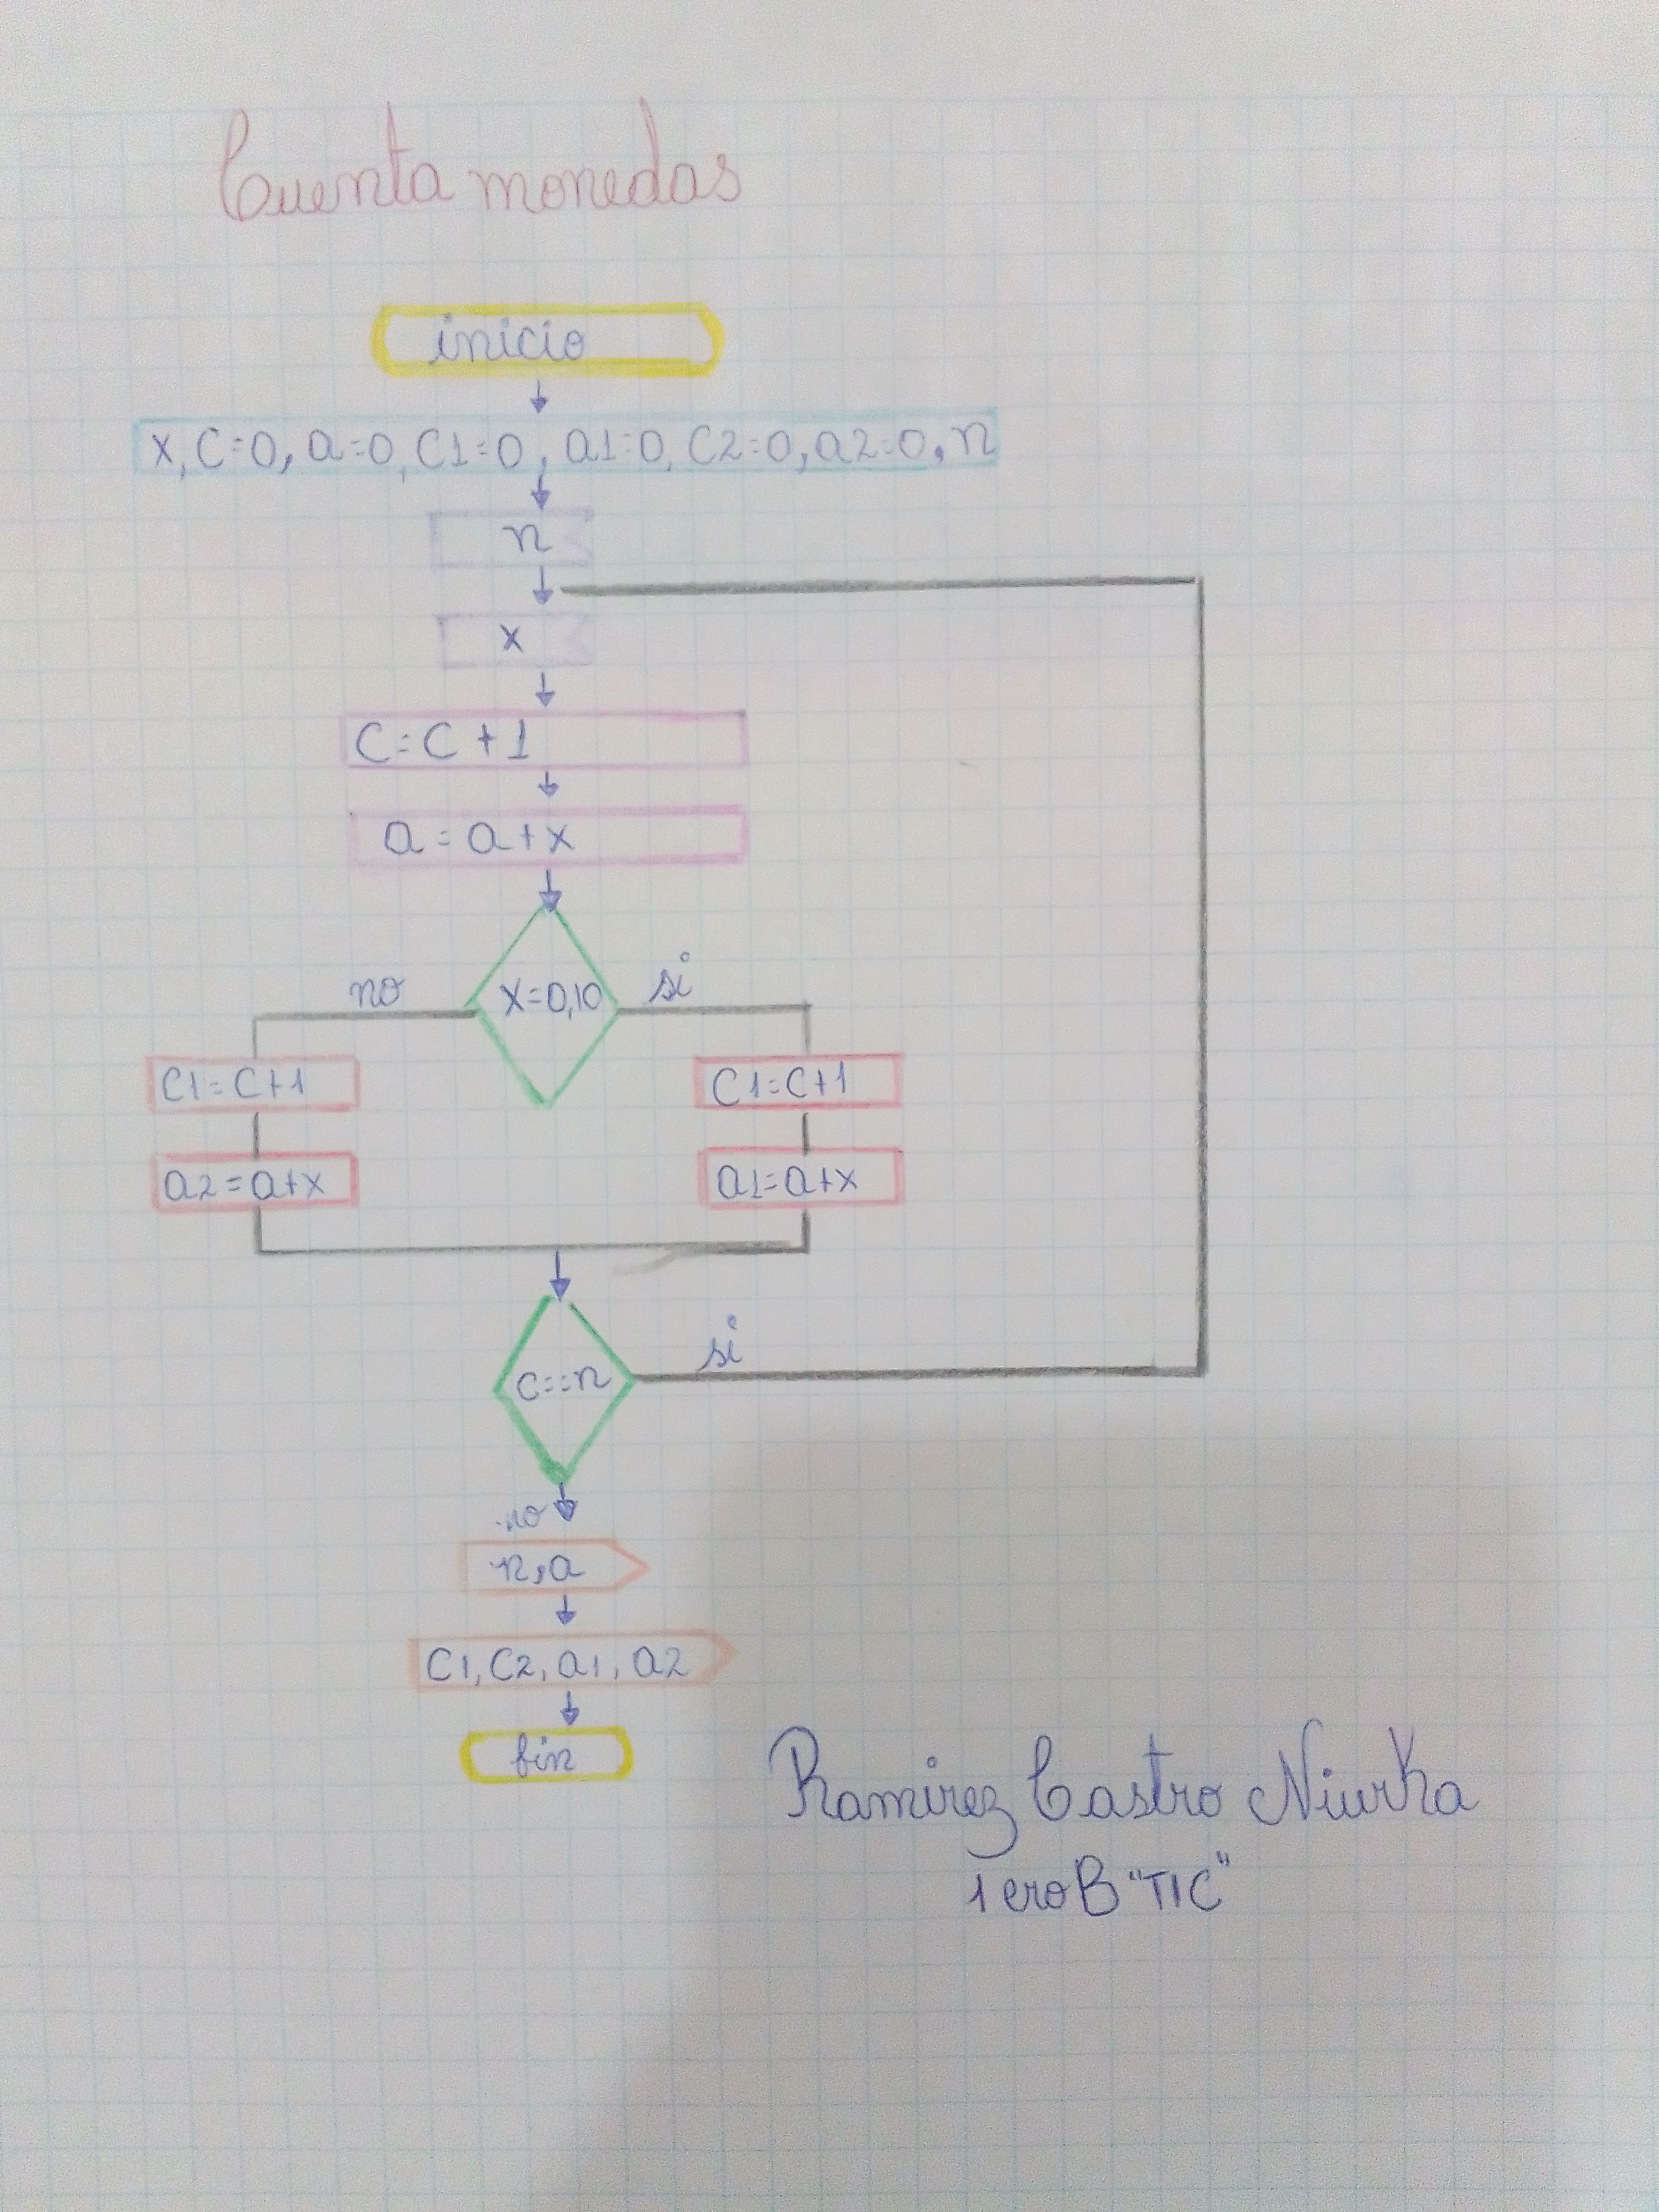 Cuenta monedas
inicio
x, C=0, a=0, C1=0, a1=0, C2=0, a2=0, n
n
x
C=C+1
a=a+x
no X=0,10 si
C1=C+1 C1=C+1
a2=a+x a1=a+x
C==n si
no
n,a
C1, C2, a1, a2
fin
Ramirez Castro Niurka
1eroB "TIC"